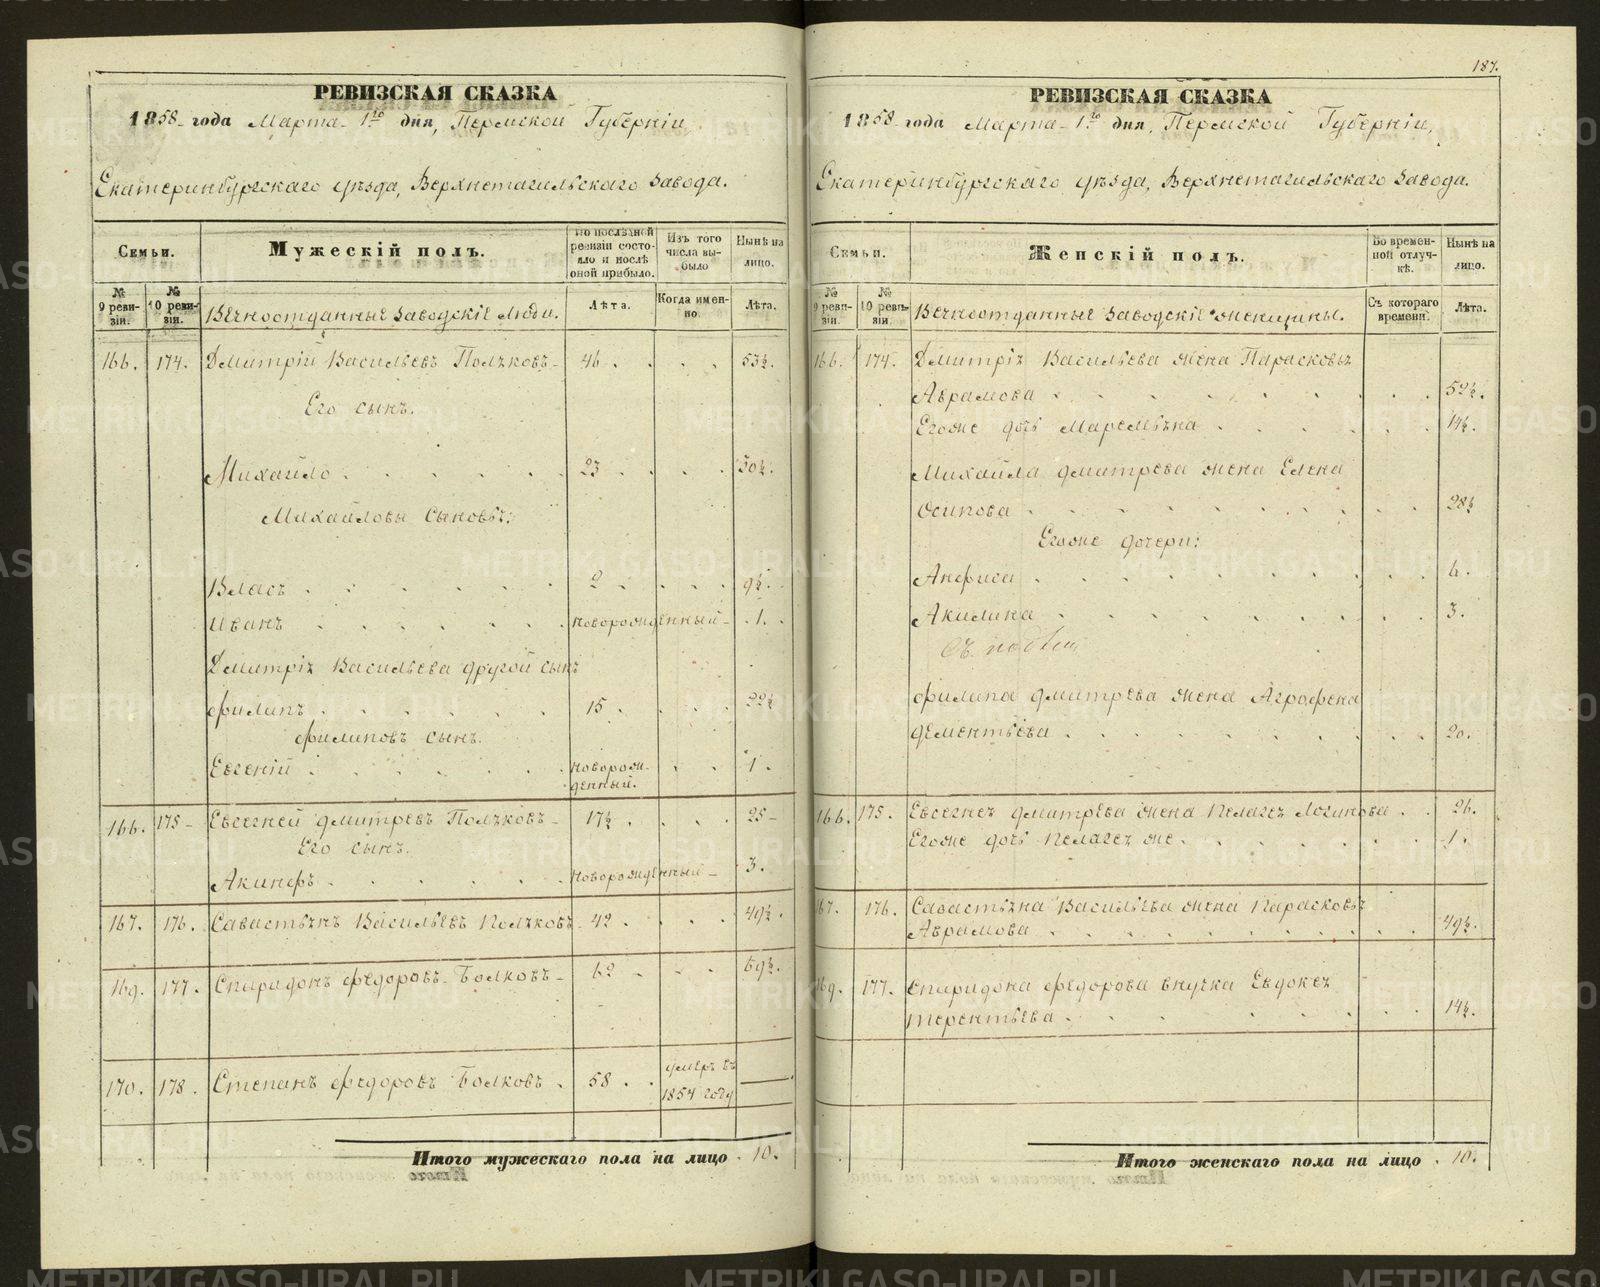 РЕВИЗСКАЯ СКАЗКА
1858 года Марта 1го дня, Пермской Губерніи,
Екатеринбургскаго уѣзда, Верхнетагильскаго Завода.
Семьи.
Мужескій полъ.
По послѣдней ревизіи состояло и послѣ оной прибыло.
Изъ того числа выбыло
Нынѣ на лицо.
№ 9 ревизіи.
№ 10 ревизіи.
Вечноотданные Заводскіе Люди.
Лѣта.
Когда именно.
Лѣта.
166. 174. Дмитрій Васильевъ Полѣковъ 46 53½.
Его сынъ.
Михайло 23 30½.
Михайловы Сыновья:
Власъ 2 9½.
Иванъ новорожденный 1.
Дмитрія Васильева другой сынъ
Филипъ 15 22½
Филиповъ сынъ.
Евгеній новорожденный. 1.
166. 175 Евсегней Дмитрѣвъ Полѣковъ 17½ 25
Его сынъ.
Акинфъ Новорожденный 3.
167. 176. Савастьянъ Васильевъ Полѣковъ 42 49½.
169. 177. Спиридонъ Федоровъ Волковъ 62 69½.
170. 178. Степанъ Федоровъ Волковъ 58 умеръ въ 1854 году
Итого мужескаго пола на лицо 10.
187.
РЕВИЗСКАЯ СКАЗКА
1858 года Марта 1го дня, Пермской Губерніи,
Екатеринбургскаго уѣзда, Верхнетагильскаго Завода.
Семьи.
Женскій полъ.
Во временной отлучкѣ.
Нынѣ на лицо.
№ 9 ревизіи.
№ 10 ревизіи.
Вечноотданные Заводскіе женщины.
Съ котораго времени.
Лѣта.
166. 174. Дмитрія Васильева жена Парасковья
Аврамова 52½.
Егоже дочь Маремьяна 14½.
Михайла Дмитрева жена Елена
Осипова 28½
Егоже дочери:
Анфиса 6.
Акилина 3.
Филипа Дмитрева жена Аграфена
Дементьева 20.
166. 175. Евсегнея Дмитрѣва жена Пелагея Логинова 26.
Егоже дочь Пелагея же 1.
167. 176. Савастьяна Васильева жена Парасковья
Аврамова 49½.
169. 177. Спиридона Федорова внучка Евдокея
Терентьева 14½.
Итого женскаго пола на лицо 10.
METRIKI.GASO-URAL.RU